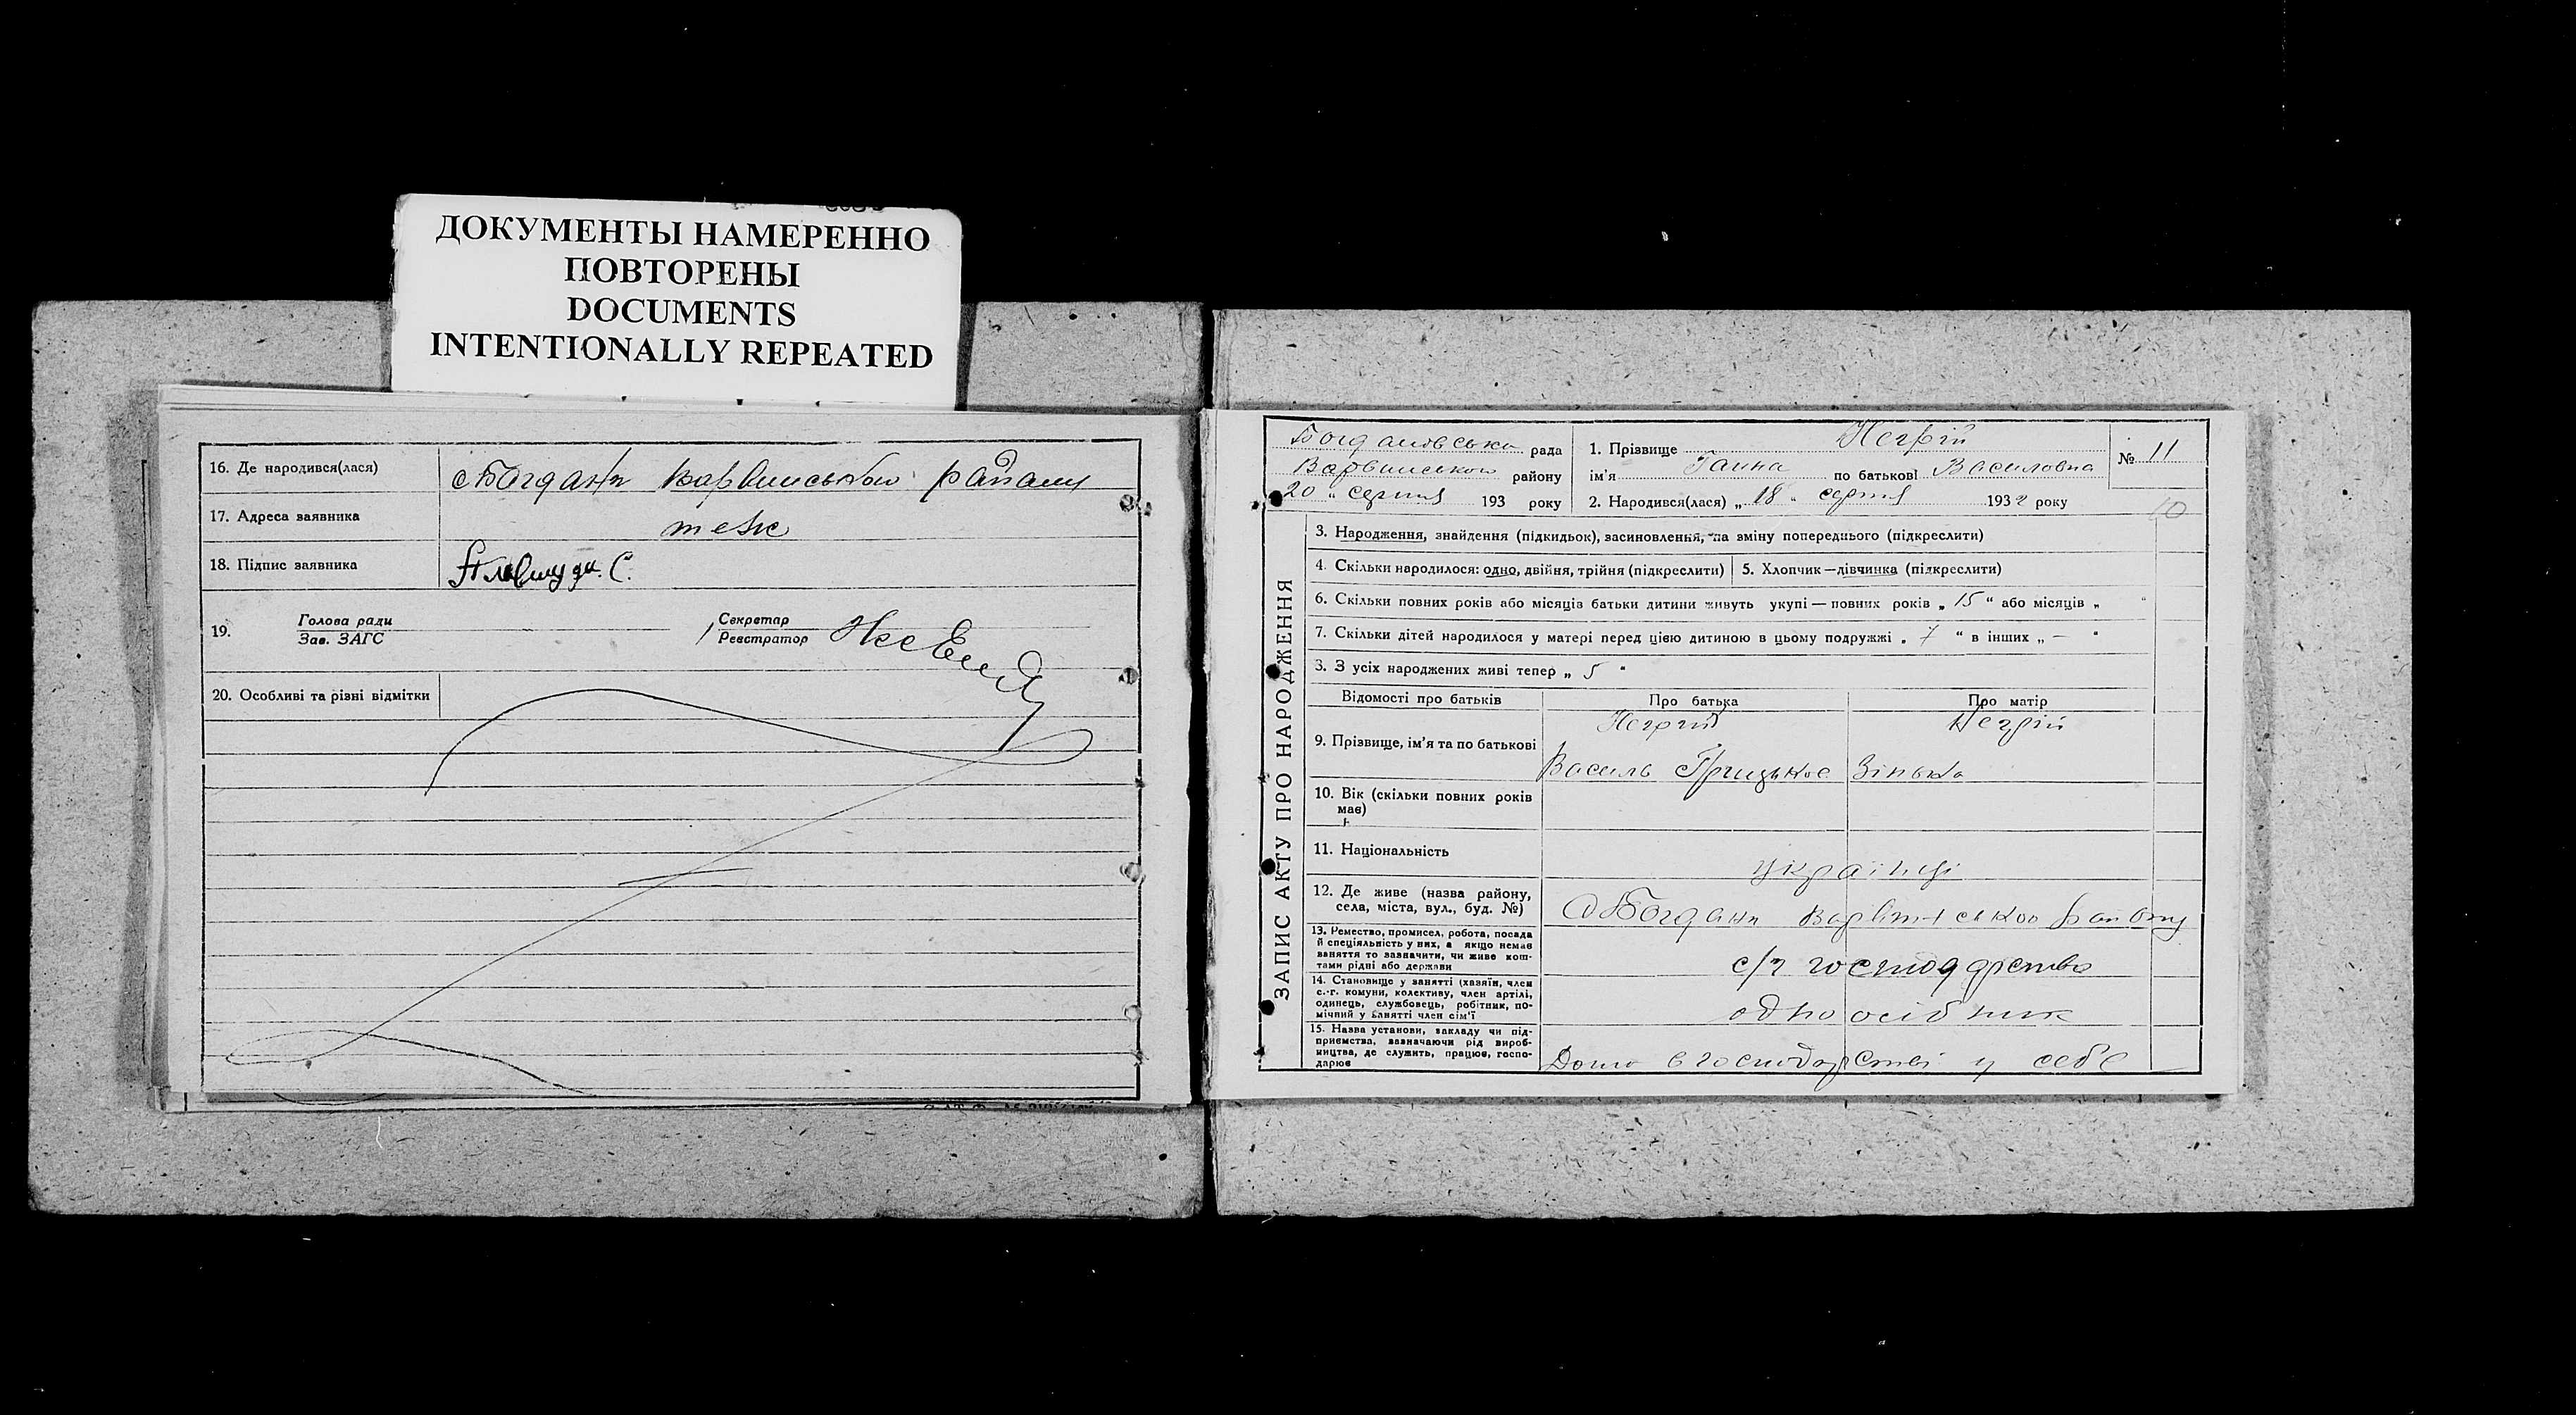 ДОКУМЕНТЫ НАМЕРЕННО
ПОВТОРЕНЫ
DOCUMENTS
INTENTIONALLY REPEATED
16. Де народився(лася) с Богдани Варвинського району
17. Адреса заявника теж
18. Підпис заявника С.
19. Голова ради
Зав. ЗАГС
Секретар
Реєстратор
20. Особливі та різні відмітки
Богдановська рада
Варвинського району
20 „ серпня 193 року
1. Прізвище Негрій
ім'я Ганна по батькові Василовна
2. Народився(лася) „ 18 " серпня 1932 року
№ 11
10
ЗАПИС АКТУ ПРО НАРОДЖЕННЯ
3. Народження, знайдення (підкидьок), засиновлення, на зміну попереднього (підкреслити)
4. Скільки народилося: одно, двійня, трійня (підкреслити) 5. Хлопчик—дівчинка (підкреслити)
6. Скільки повних років або місяців батьки дитини живуть укупі — повних років „ 15 " або місяців „ "
7. Скільки дітей народилося у матері перед цією дитиною в цьому подружжі „ 7 " в інших „ — "
3. З усіх народжених живі тепер „ 5 "
Відомості про батьків Про батька Про матір
9. Прізвище, ім'я та по батькові
Негрій Негрій
Василь Грицьков Зінька
10. Вік (скільки повних років має)
11. Національність українці
12. Де живе (назва району, села, міста, вул., буд. №)
с Богдани Варвинського району
13. Ремество, промисел, робота, посада й спеціяльність у них, а якщо немає заняття то зазначити, чи живе коштами рідні або держави
с/г господарство
14. Становище у занятті (хазяїн, член с.-г. комуни, колективу, член артілі, одинець, службовець, робітник, помічний у занятті член сім'ї
одноосібник
15. Назва установи, закладу чи підприємства, зазначаючи рід виробництва, де служить, працює, господарює
Дома в господарстві у себе